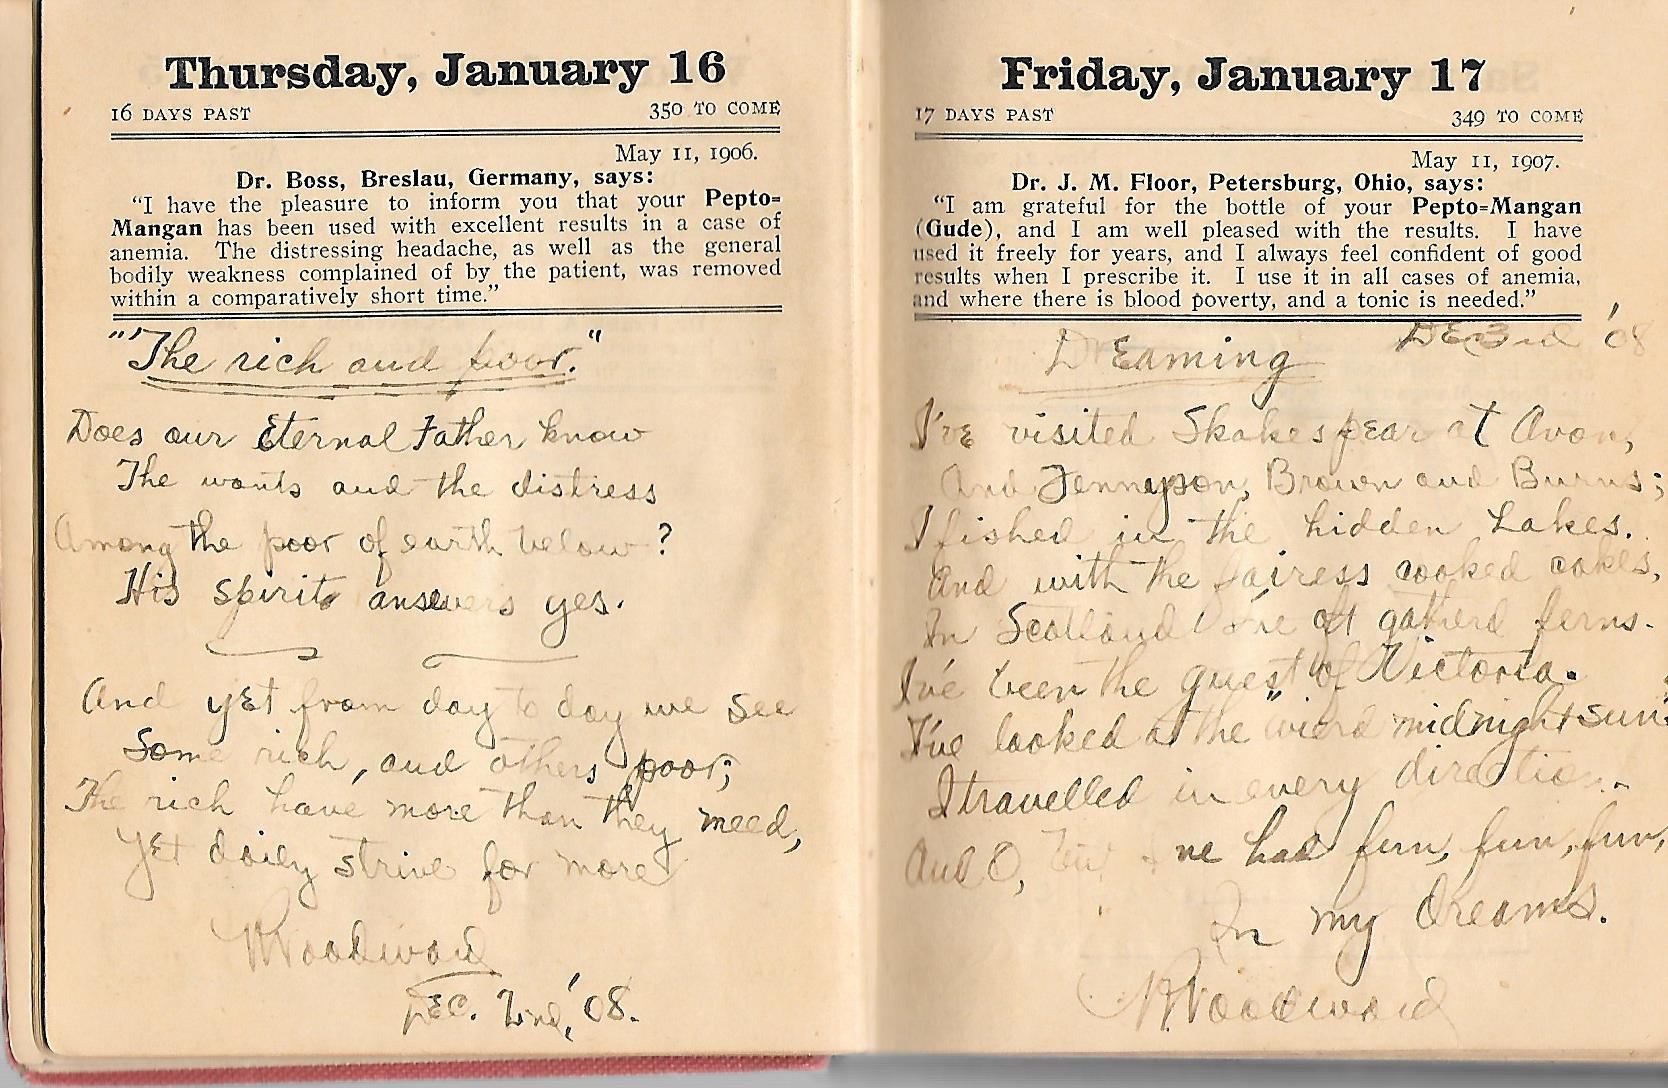 Thursday, January 16
16 DAYS PAST 350 TO COME
May 11, 1906.
Dr. Boss, Breslau, Germany, says:
"I have the pleasure to inform you that your Pepto=
Mangan has been used with excellent results in a case of
anemia. The distressing headache, as well as the general
bodily weakness complained of by the patient, was removed
within a comparatively short time."
"The rich and poor."
Does our Eternal Father know
The wants and the distress
Among the poor of earth below?
His spirit answers yes.
And yet from day to day we see
Some rich, and others poor;
The rich have more than they need,
Yet daily strive for more
Woodward
Dec. 2nd, '08.
Friday, January 17
17 DAYS PAST 349 TO COME
May 11, 1907.
Dr. J. M. Floor, Petersburg, Ohio, says:
"I am grateful for the bottle of your Pepto=Mangan
(Gude), and I am well pleased with the results. I have
used it freely for years, and I always feel confident of good
results when I prescribe it. I use it in all cases of anemia,
and where there is blood poverty, and a tonic is needed."
DEC 3rd '08
DEaming
I've visited Skakespear at Avon,
And Tennyson, Brown and Burns;
I fished in the hidden Lakes.
And with the fairess cooked cakes,
In Scotland I've oft gatherd ferns.
I've been the guest of Victoria.
I've looked at the "wierd midnight sun"
I travelled in every direction.
And O, I've had fun, fun, fun,
In my dreams.
Woodward